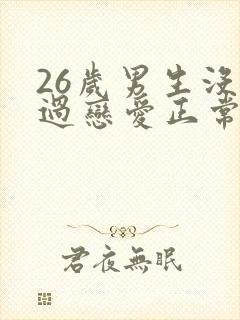 26歲男生沒
過戀愛正常
君夜無眠